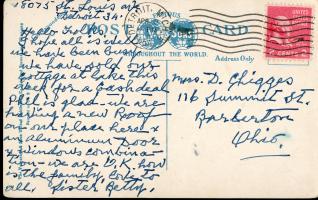 18075 St. Louis ave
Detroit 34.
Hello Folks
POST CARD
DETROIT, MICH
THROUGHOUT THE WORLD.
Address Only
hope all is well
we have been busy
we have sold our
cottage at lake this
week for a cash deal
Phil is glad - we are
having a new Roof
on our place here x
an aluminum door
x windows combina-
tion - we are O.K. how
is the family, love to
all. Sister Betty.
Mrs. D. Chiggas
176 Summit St.
Barberton
Ohio.